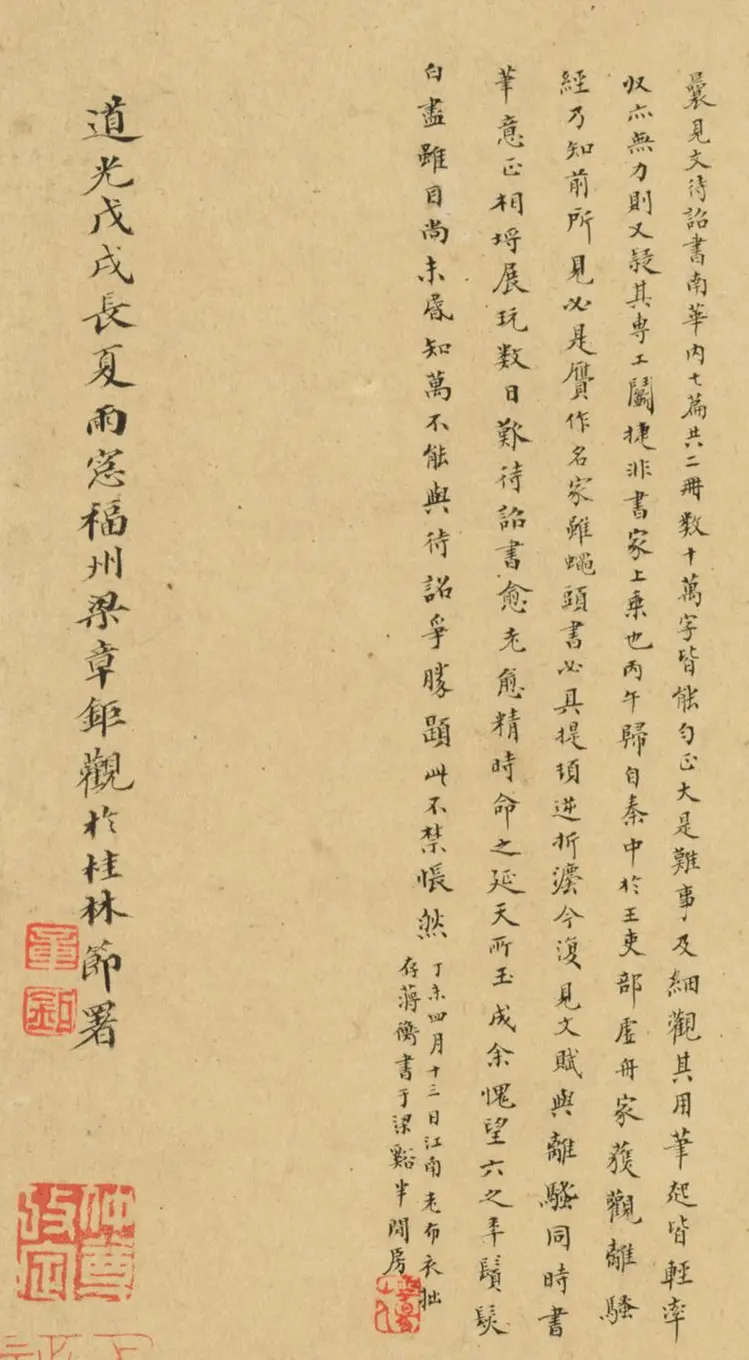 曩見文待詔書南華內七篇共二冊数十萬字皆能勻正大是難事及細觀其用筆起皆輕率
収亦無力則又疑其專工鬬捷非書家上乗也丙午歸自秦中於王吏部虛舟家獲觀離騷
經乃知前所見必是贋作名家雖蠅頭書必具提頓逆折灋今復見文賦與離騷同時書
筆意正相埒展玩数日歎待詔書愈老愈精時命之延天所玉成余愧望六之年鬚髮
白盡雖目尚未昏知萬不能與待詔爭勝題此不禁悵然
丁未四月十三日江南老布衣拙
存蔣衡書于梁谿半閒房
道光戊戌長夏雨窓福州梁章鉅觀於桂林節署
章
鉅